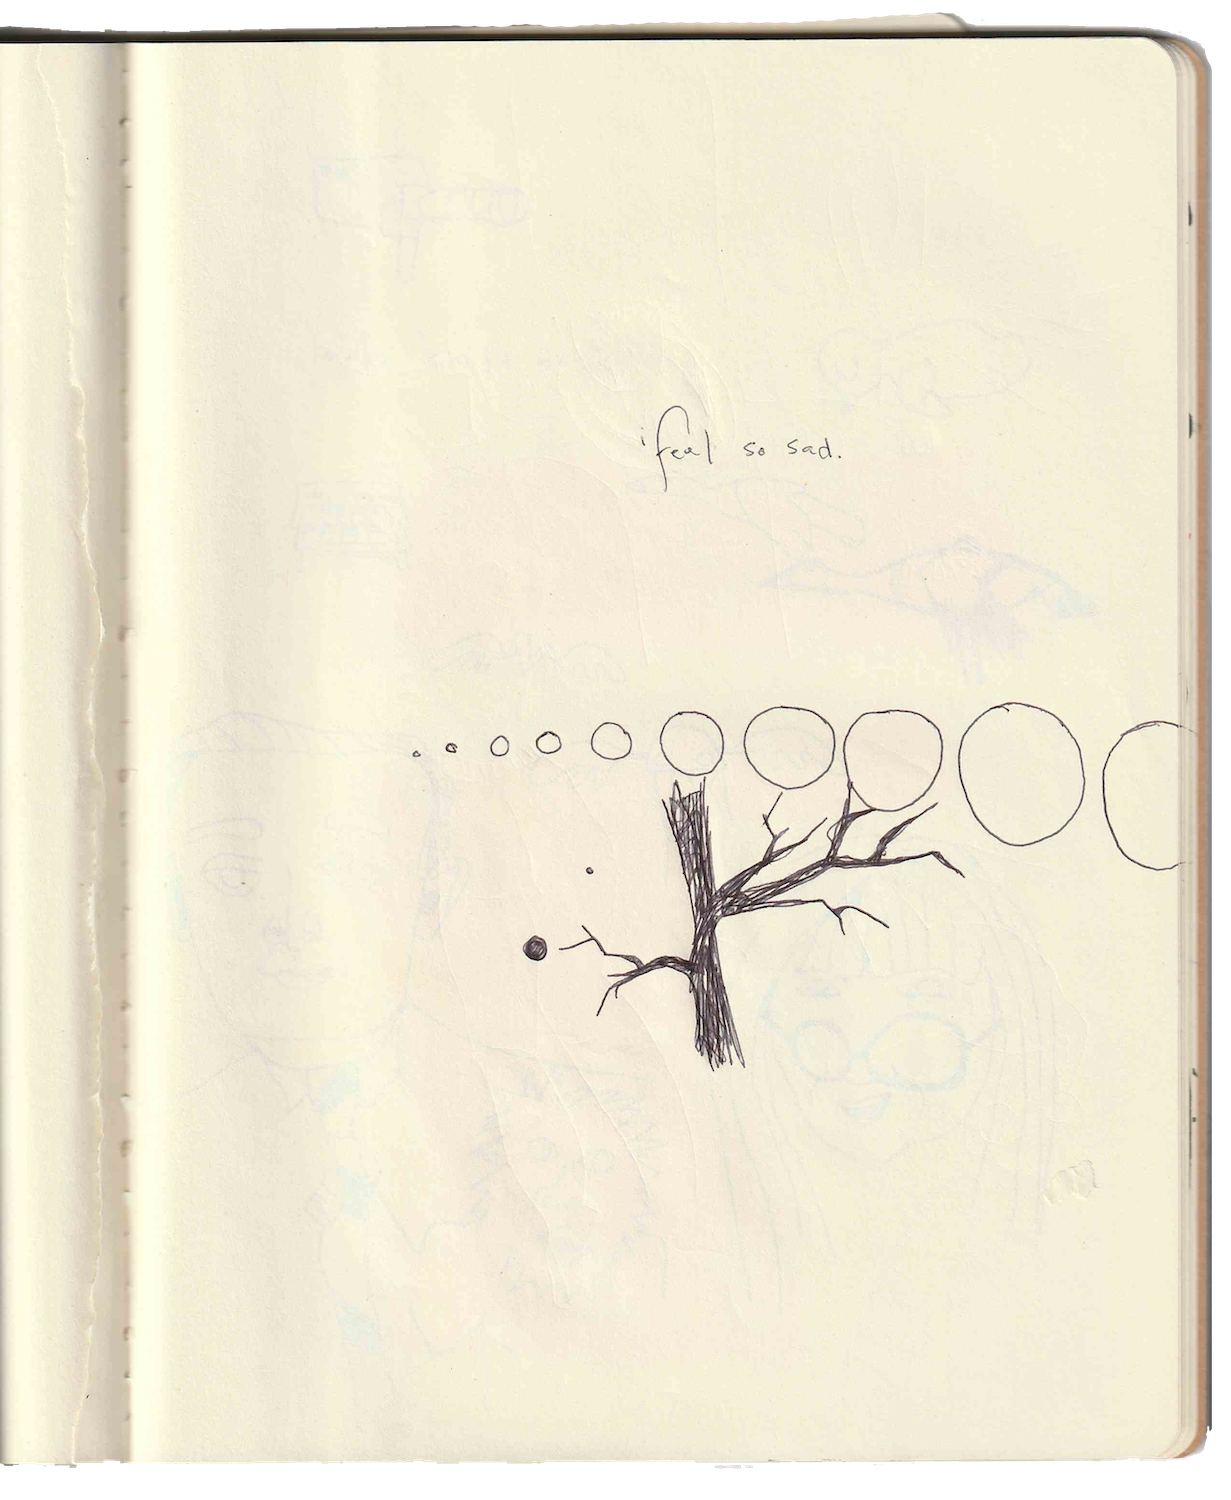 i feal so sad.